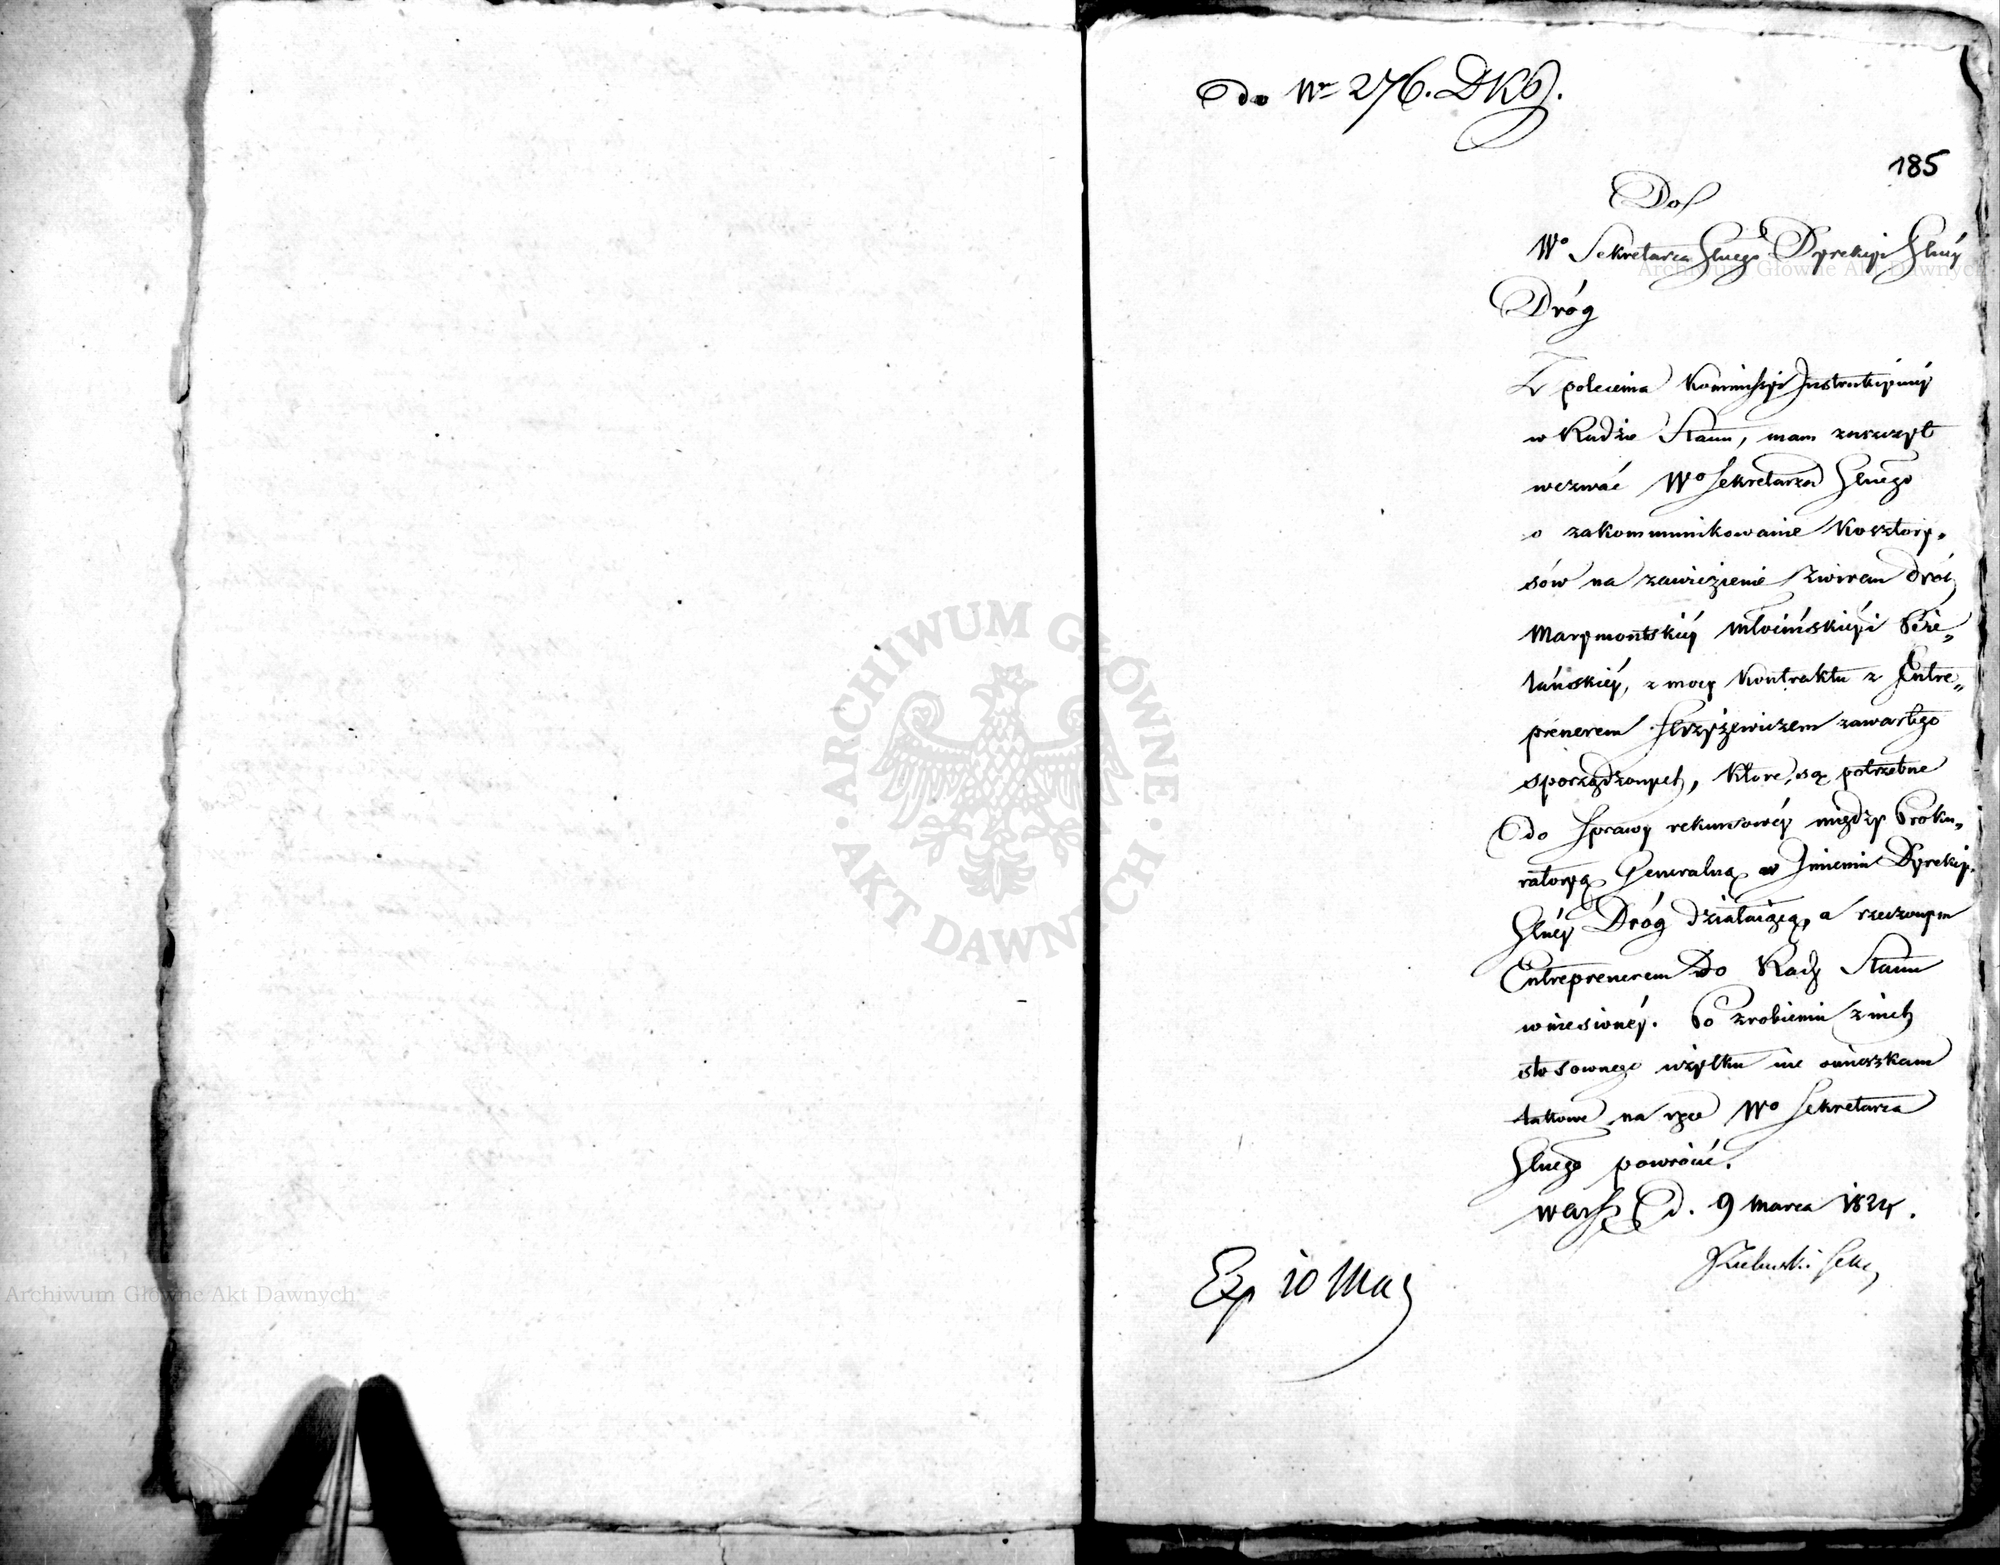 do Nr 276. DKg.
185
Do
Wo Sekretarza Głnego Dyrekcji Głnéy
Dróg
Z polecenia Kommissyi Instrukcyinéy
w Radzie Stanu, mam zaszczyt
wezwać Wo Sekretarza Głnego
o zakommunikowanie Kosztory„
sów na zawiezienie Żwirem dróg
Marymontskiéy Młocińskiéy i Bie„
lańskiéy, z mocy Kontraktu z Entre„
prenerem zawartego
sporządzonych, które są potrzebne
do Sprawy rekursowéy między Proku„
ratoryą Generalną w Jmieniu Dyrekcyi
Głnéy Dróg działaiącą, a rzeczonym
Entreprenerem do Rady Stanu
wniesionéy. Po zrobieniu z nich
stosownego użytku nie omieszkam
takowe na ręce Wo Sekretarza
Głnego powrócić.
Warsz d. 9 Marca 1824.
Sekr
Exp 10 Mar
ARCHIWUM GŁÓWNE AKT DAWNYCH
Archiwum Główne Akt Dawnych
Archiwum Główne Akt Dawnych